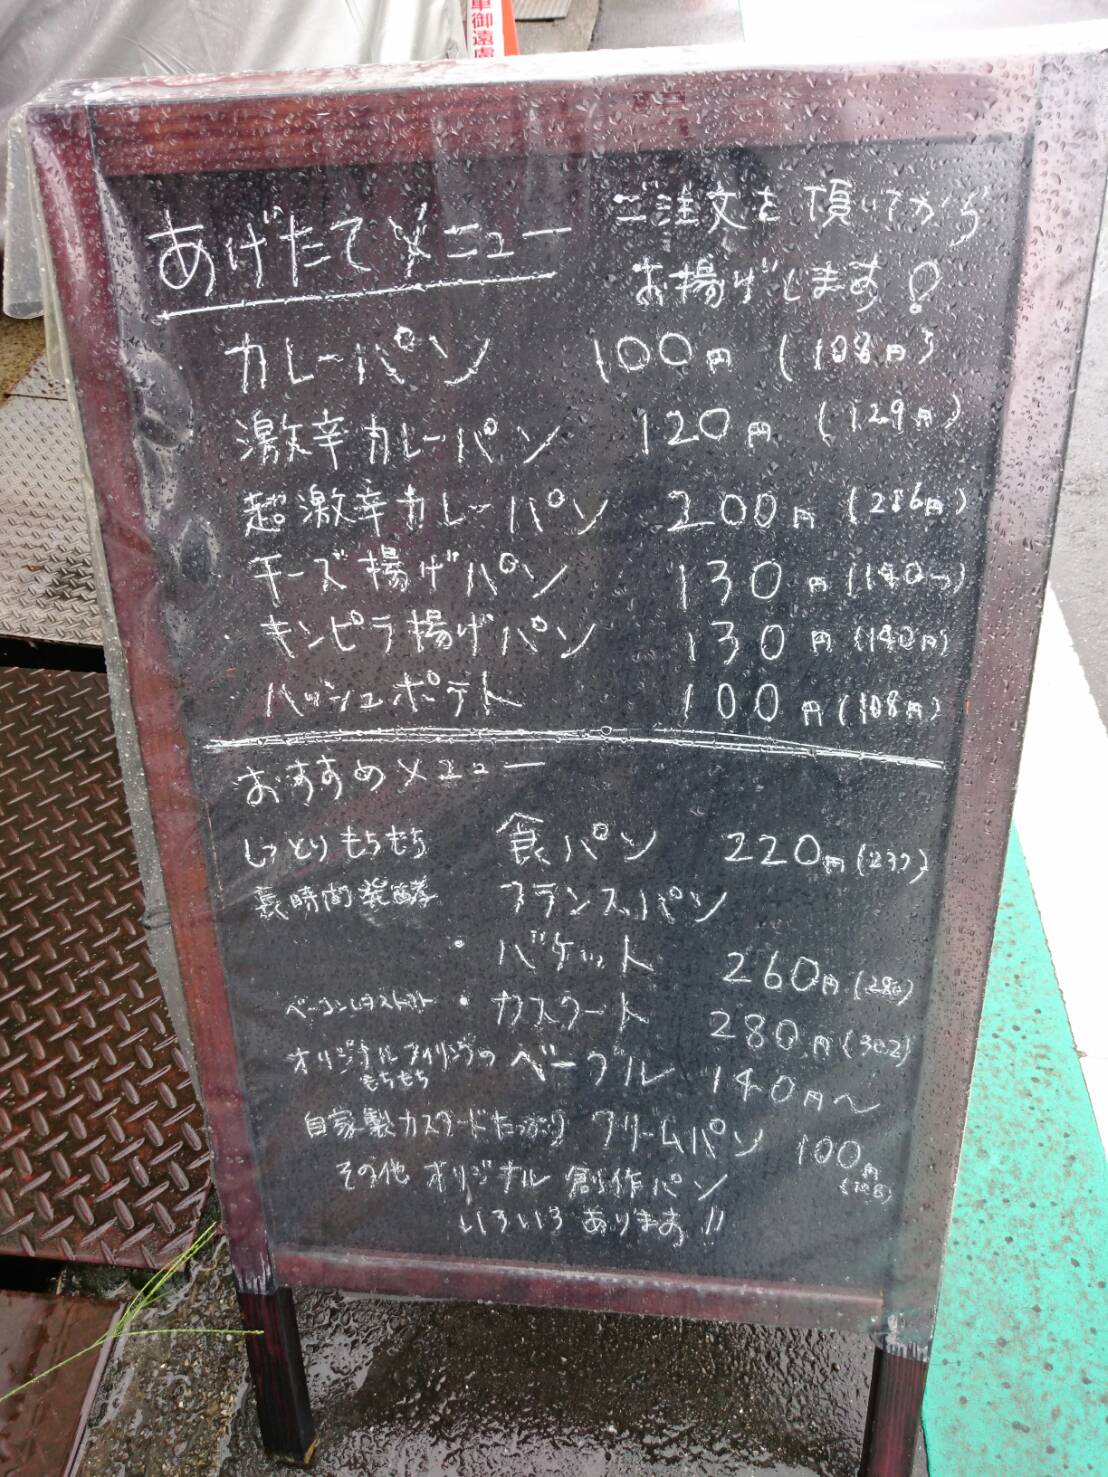 車御遠慮
あげたてメニュー
ご注文を頂いてから
お揚げします!
カレーパン 100円 (108円)
激辛カレーパン 120円 (129円)
超激辛カレーパン 200円 (216円)
チーズ揚げパン 130円 (140円)
キンピラ揚げパン 130円 (140円)
ハッシュポテト 100円 (108円)
おすすめメニュー
しっとりもちもち 食パン 220円 (237)
長時間発酵 フランスパン
・バケット 260円 (280)
ベーコンレタストマト ・カスクート 280円 (302)
オリジナルフィリングの
もちもち ベーグル 140円〜
自家製カスタードたっぷり クリームパン 100円
(108)
その他 オリジナル 創作パン
いろいろあります!!